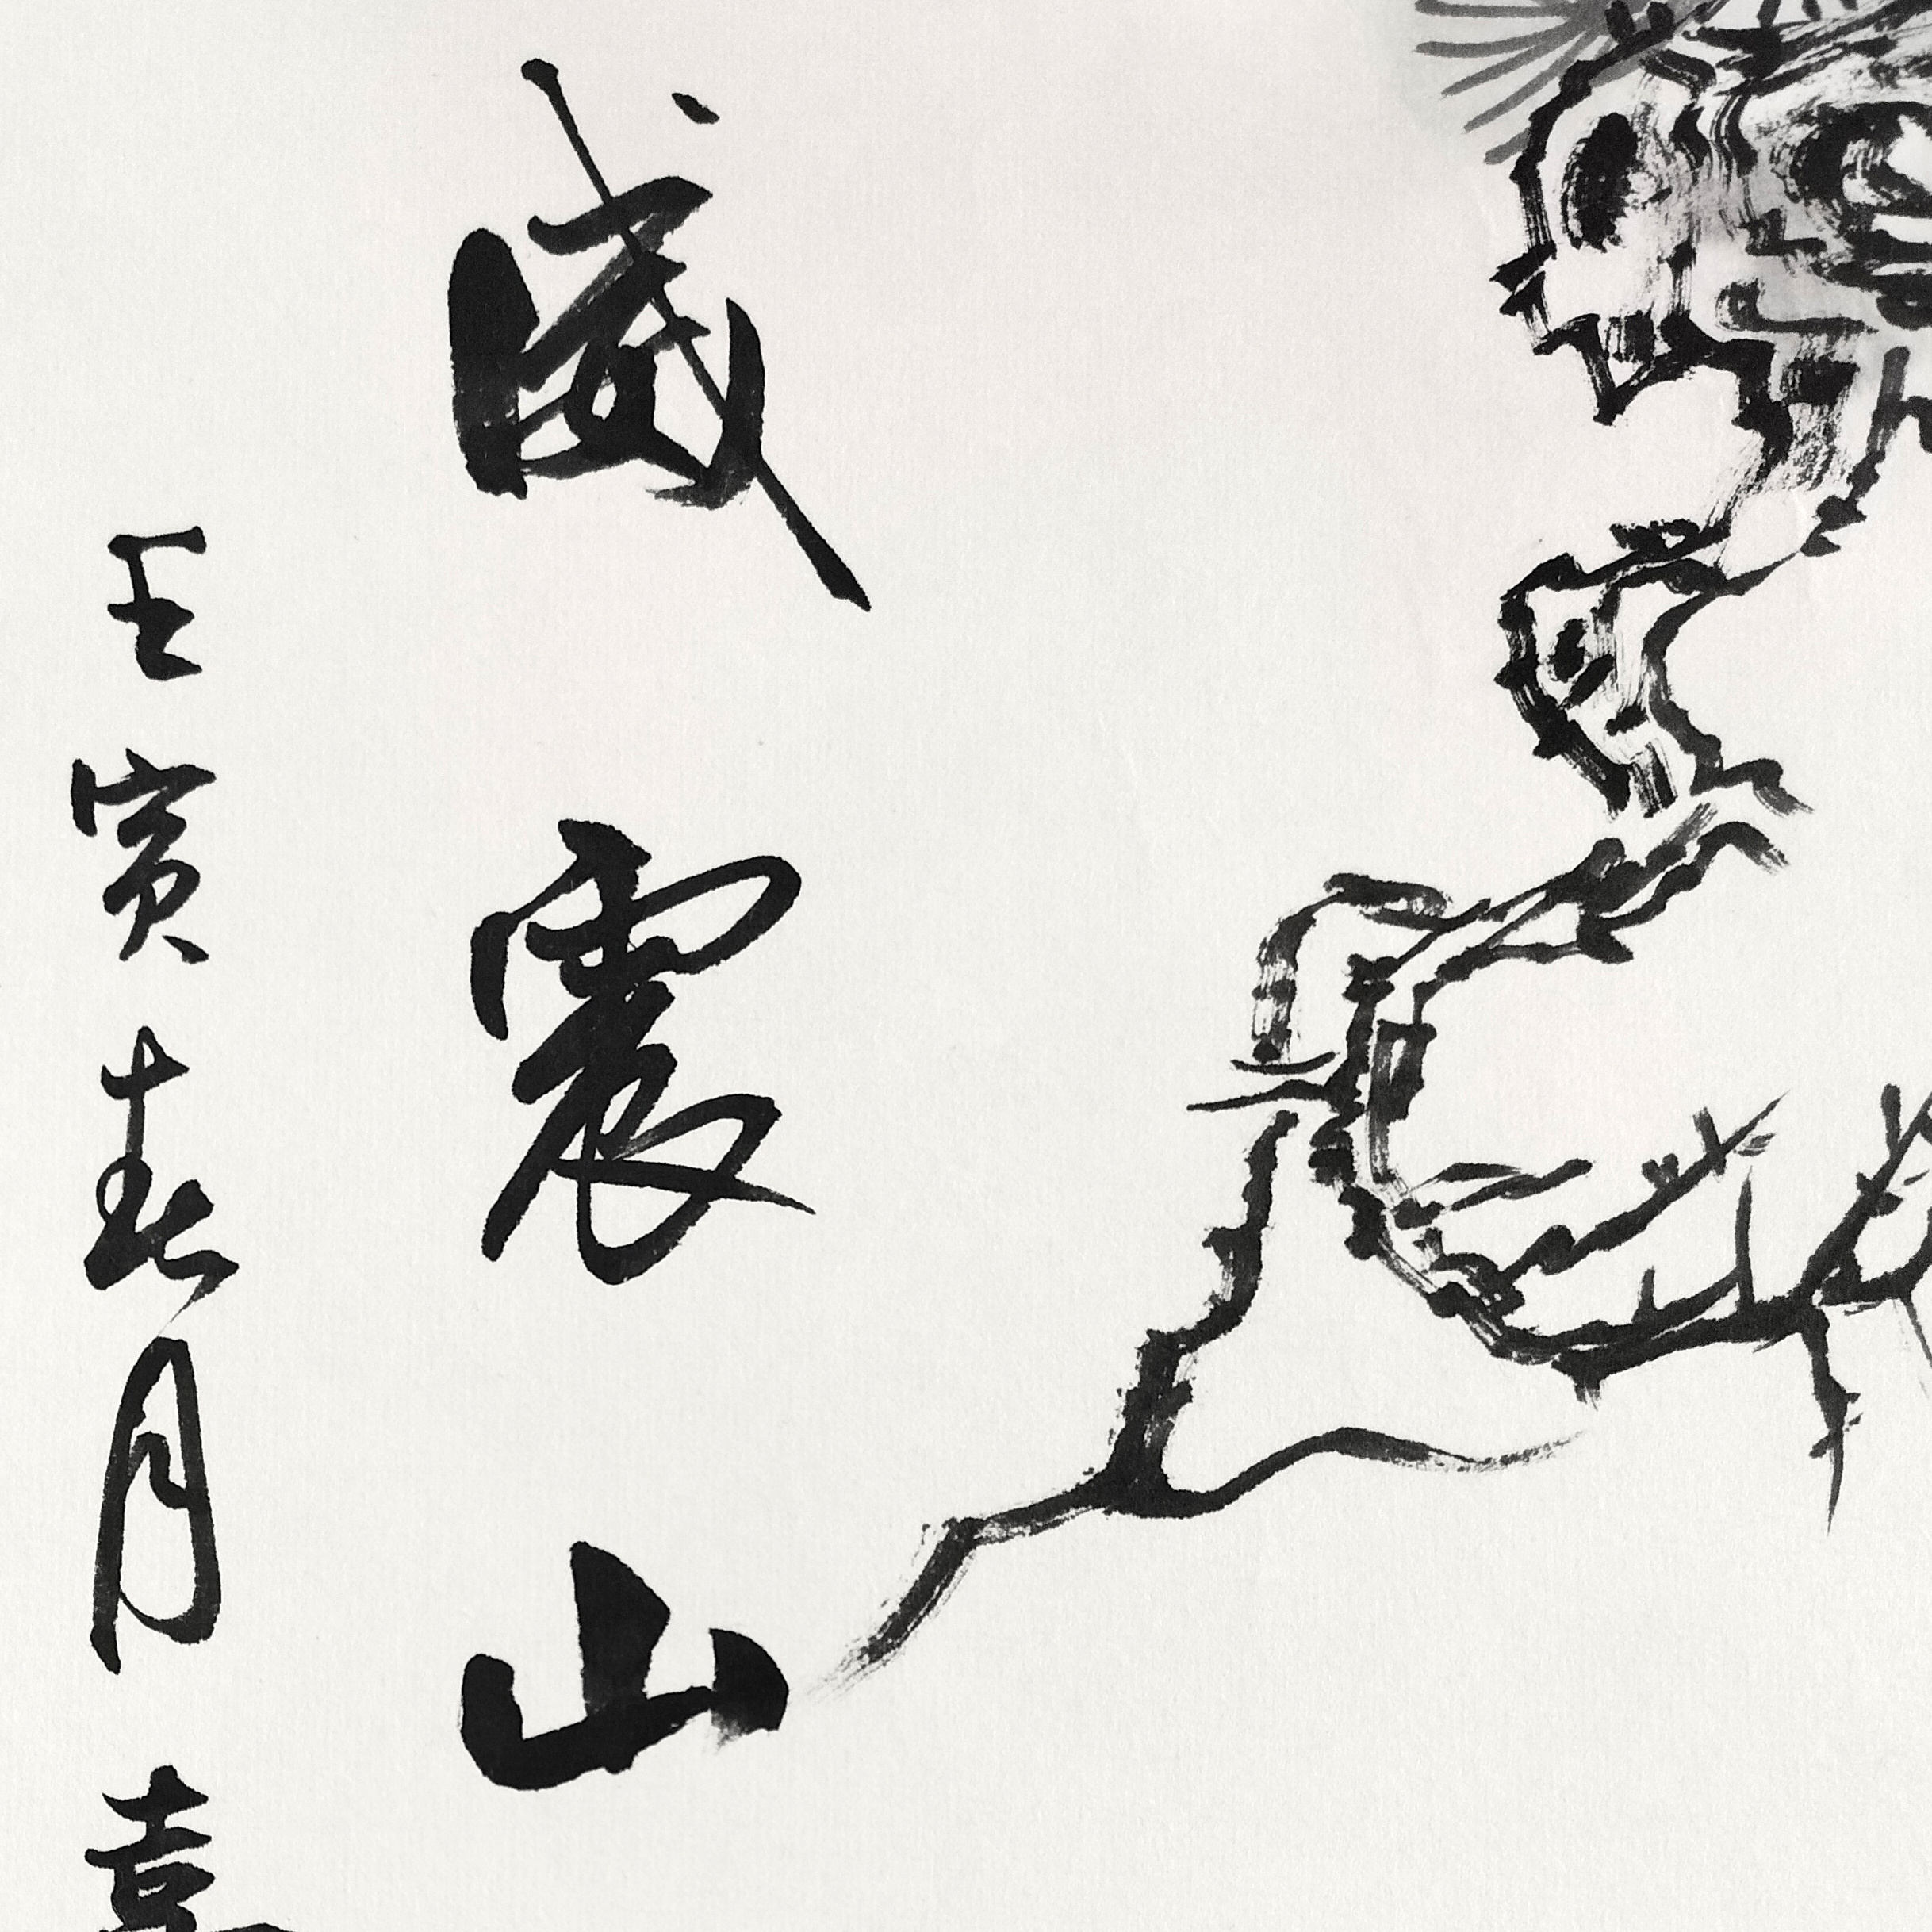 威震山
壬寅春月